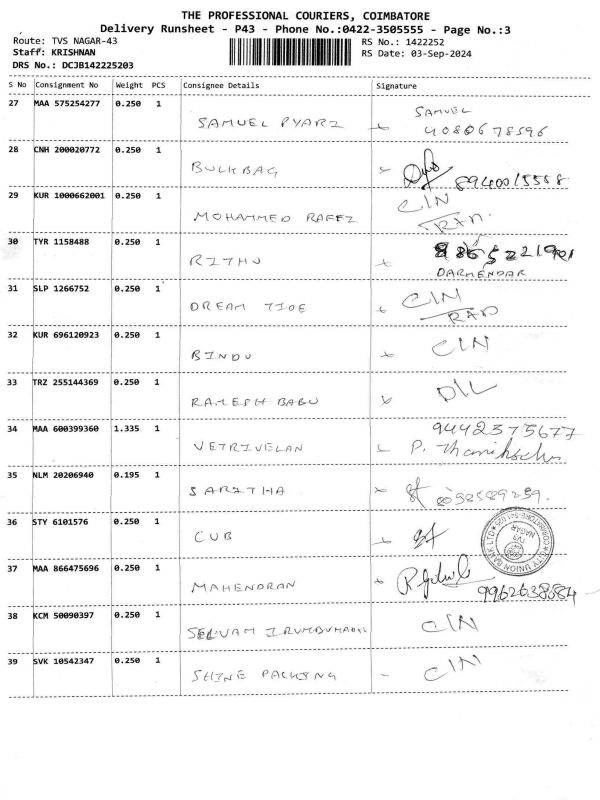 THE PROFESSIONAL COURIERS, COIMBATORE
Delivery Runsheet - P43 - Phone No.:0422-3505555 - Page No.:3
Route: TVS NAGAR-43 RS No.: 1422252
Staff: KRISHNAN RS Date: 03-Sep-2024
DRS No.: DCJB142225203
S No Consignment No Weight PCS Consignee Details Signature
27 MAA 575254277 0.250 1 SAMUEL PYARI SAMUEL
4080678596
28 CNH 200020772 0.250 1 BULKBAG 8940015558
29 KUR 1000662001 0.250 1 MOHAMMED RAFEZ CIN
30 TYR 1158488 0.250 1 RITHU
DARMENDAR
31 SLP 1266752 0.250 1 DREAM TIDE CIN
32 KUR 696120923 0.250 1 BINDU CIN
33 TRZ 255144369 0.250 1 RAMESH BABU DIL
34 MAA 600399360 1.335 1 VETRIVELAN 9442375677
P.
35 NLM 20206940 0.195 1 SARITHA
36 STY 6101576 0.250 1 CUB
CITY UNION BANK LTD
TVS NAGAR
37 MAA 866475696 0.250 1 MAHENDRAN 9962638884
38 KCM 50090397 0.250 1 SELVAM CIN
39 SVK 10542347 0.250 1 SHINE PACKING CIN